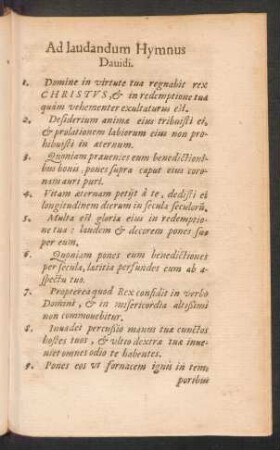 Ad laudandum Hymnus
Dauidi.
1. Domine in virtute tua regnabit rex
CHRISTVS, & in redemptione tua
quàm vehementer exultaturus est.
2. Desiderium animæ eius tribuisti ei,
& prolationem labiorum eius non pro
hibuisti in æternum.
3. Quoniam præuenies eum benedictioni-
bus bonis, pones supra caput eius coro-
nam auri puri.
4. Vitam æternam petijt à te, dedisti ei
longitudinem dierum in secula seculorũ.
5. Multa est gloria eius in redemptio-
ne tua: laudem & decorem pones su-
per eum.
6. Quoniam pones eum benedictiones
per secula, lætitia perfundes eum ab a-
spectu tuo.
7. Propterea quod Rex confidit in verbo
Domini, & in misericordia altissimi
non commouebitur.
8. Inuadet percussio manus tuæ cunctos
hostes tuos, & vltio dextræ tuæ inue-
niet omnes odio te habentes.
9. Pones eos vt fornacem ignis in tem-
poribus